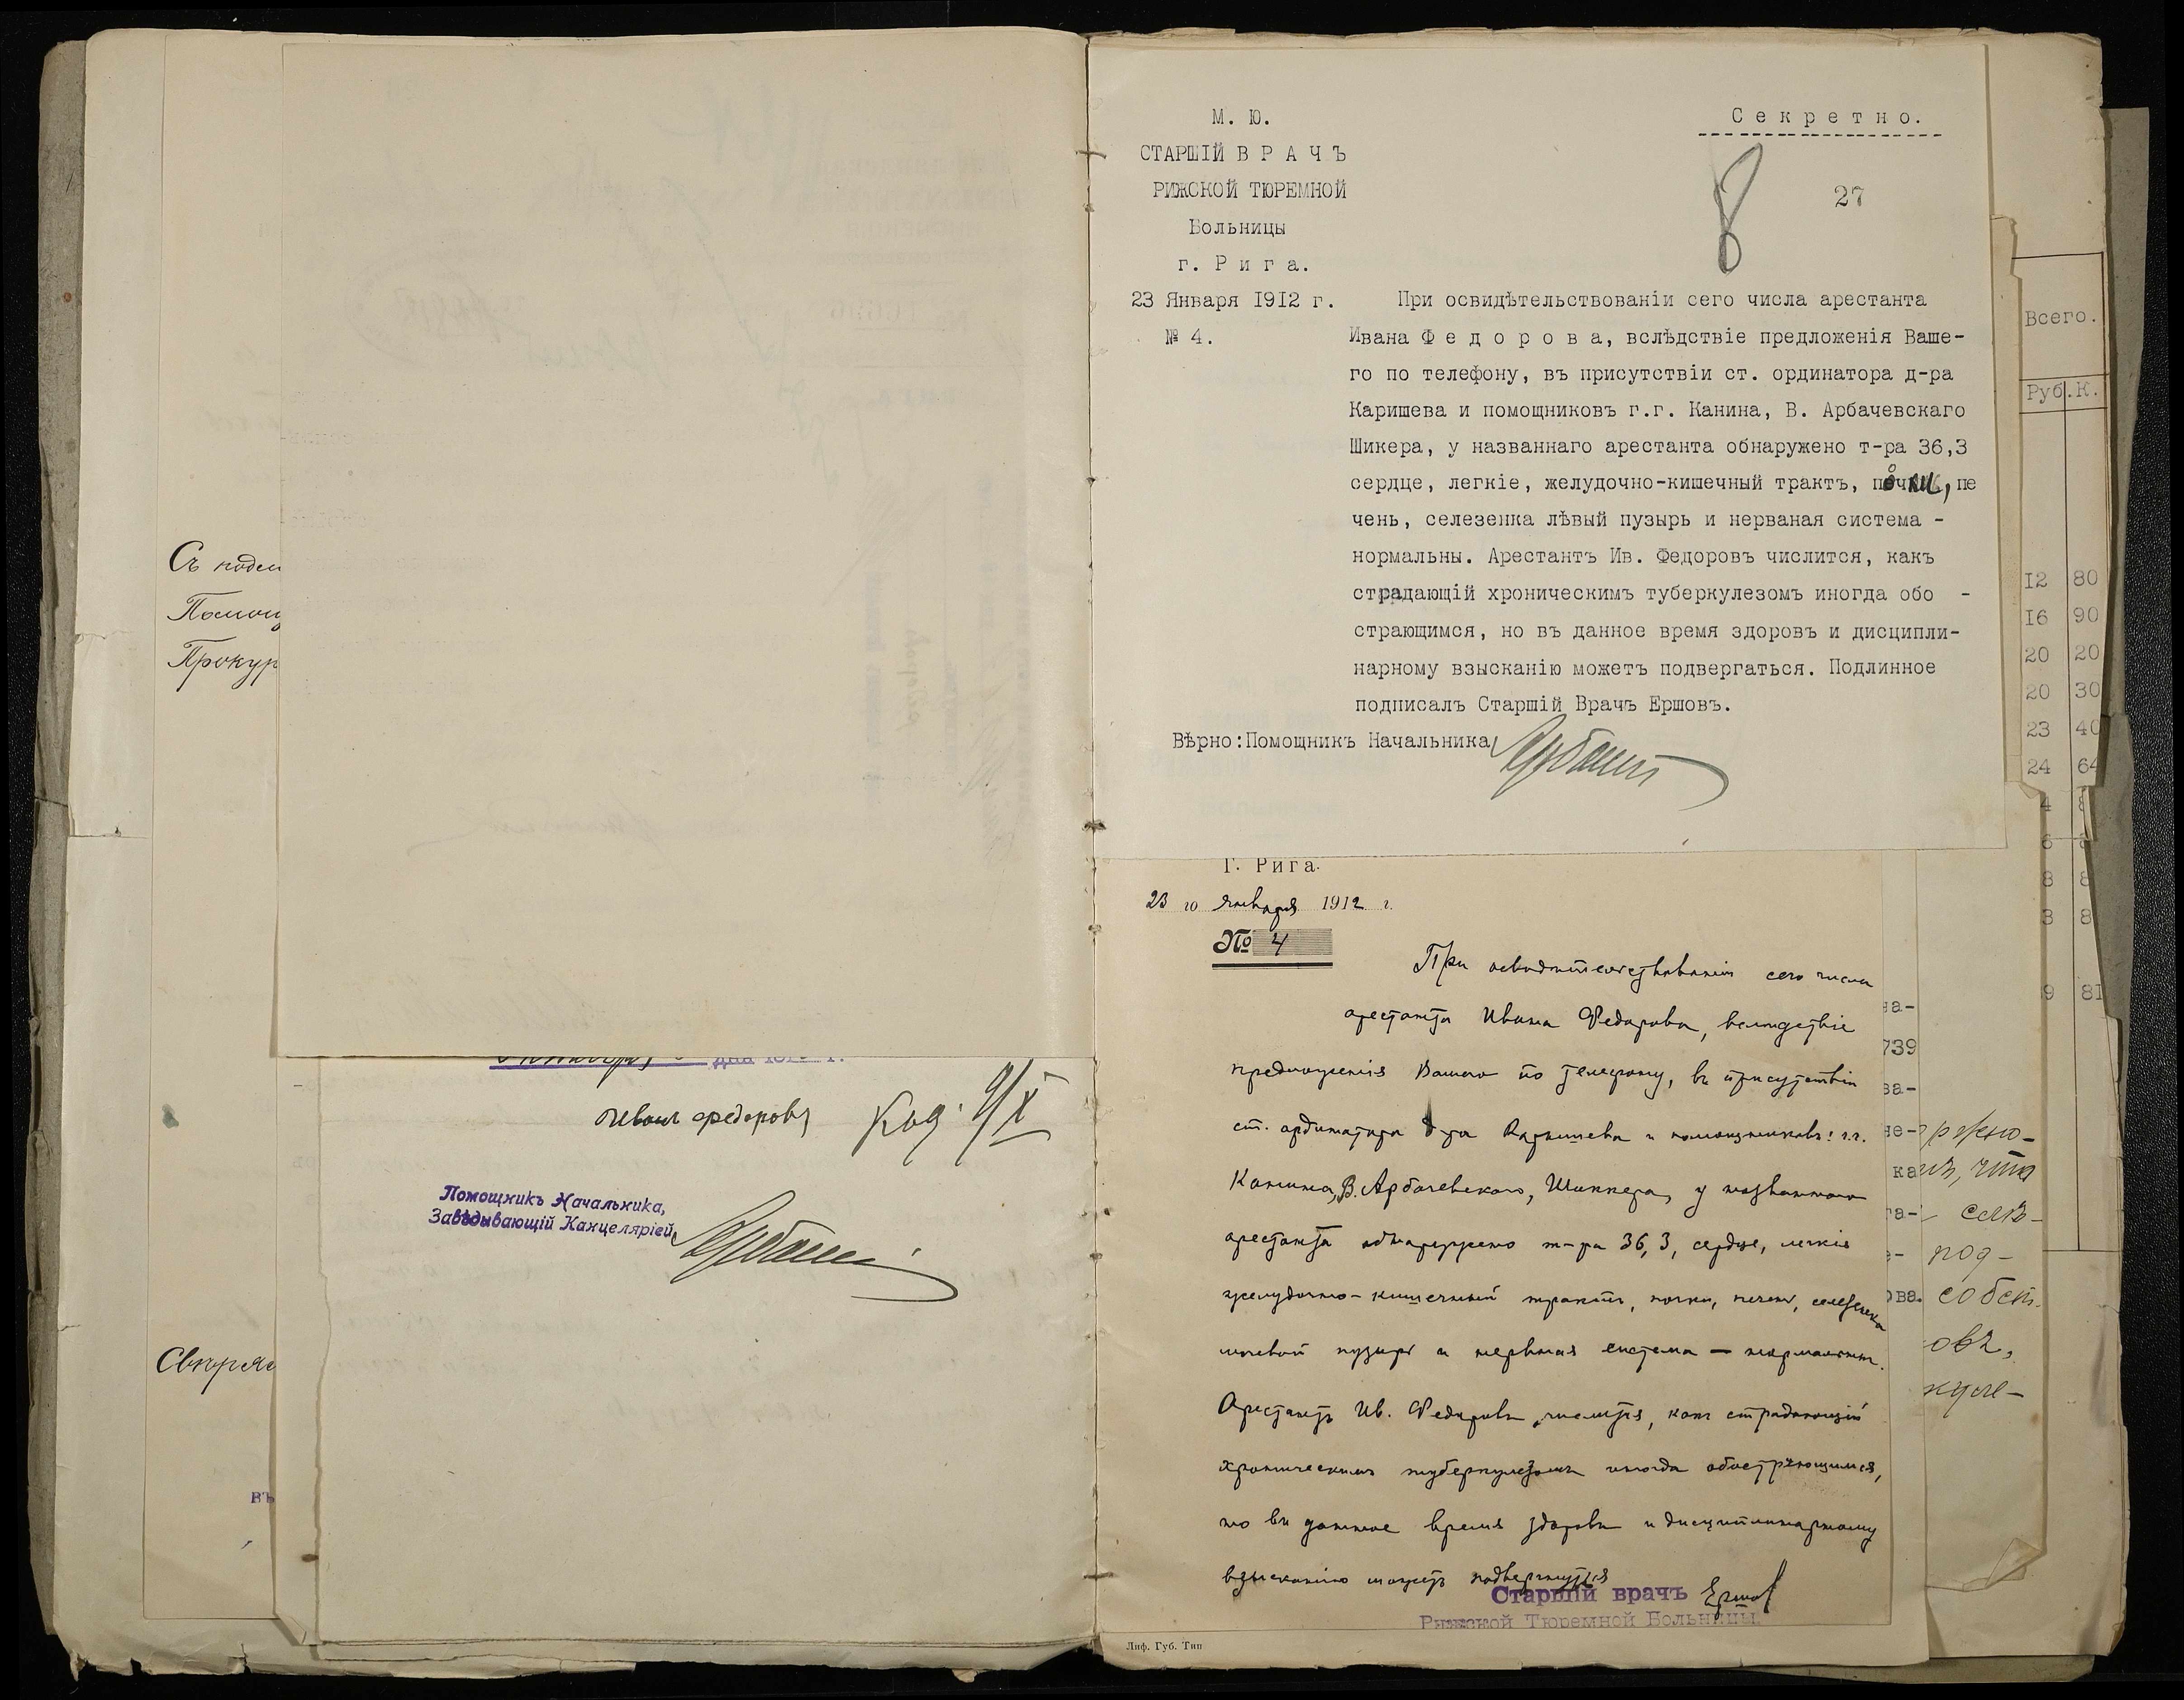 Съ
Помощ
Прокур
въ
дня
Иванъ Федоровъ
Помощникъ Начальника,
Завѣдывающій Канцеляріей
М. Ю.
Секретно.
СТАРШІЙ ВРАЧЪ
РИЖСКОЙ ТЮРЕМНОЙ
8
27
Больницы
г. Рига.
23 Января 1912 г.
№ 4.
При освидѣтельствованіи сего числа арестанта
Ивана Федорова, вслѣдствіе предложенія Ваше-
го по телефону, въ присутствіи ст. ординатора д-ра
Каришева и помощниковъ г.г. Канина, В. Арбачевскаго
Шикера, у названнаго арестанта обнаружено т-ра 36,3
сердце, легкіе, желудочно-кишечный трактъ, почки, пе
чень, селезенка лѣвый пузырь и нерваная система -
нормальны. Арестантъ Ив. Федоровъ числится, какъ
страдающій хроническимъ туберкулезомъ иногда обо -
страющимся, но въ данное время здоровъ и дисципли-
нарному взысканію можетъ подвергаться. Подлинное
подписалъ Старшій Врачъ Ершовъ.
Вѣрно: Помощникъ Начальника
Г. Рига.
23 го января 1912 г.
№ 4
При освидѣтельствованіи сего числа
арестанта Ивана Федорова, вслѣдствіе
предложенія Вашего по телефону, въ присутствіи
ст. ординатора д-ра Каришева и помощниковъ: г.г.
Канина, В. Арбачевскаго, Шиккера, у названнаго
арестанта обнаружено т-ра 36,3, сердце, легкія
желудочно-кишечный трактъ, почки, печень, селезенка
мочевой пузырь и нервная система — нормальны.
Арестантъ Ив. Федоровъ числится, какъ страдающій
хроническимъ туберкулезомъ иногда обостряющимся,
но въ данное время здоровъ и дисциплинарному
взысканію можетъ подвергнуться
Старшій врачъ Ершов
Рижской Тюремной Больницы.
Лиф. Губ. Тип
на-
739
ва-
не-
ка
та-
е-
ова.
что
под-
собст-
овъ,
Всего.
Руб. К.
12 80
16 90
20 20
20 30
23 40
24 64
4 8
6
8 8
3 8
9 81